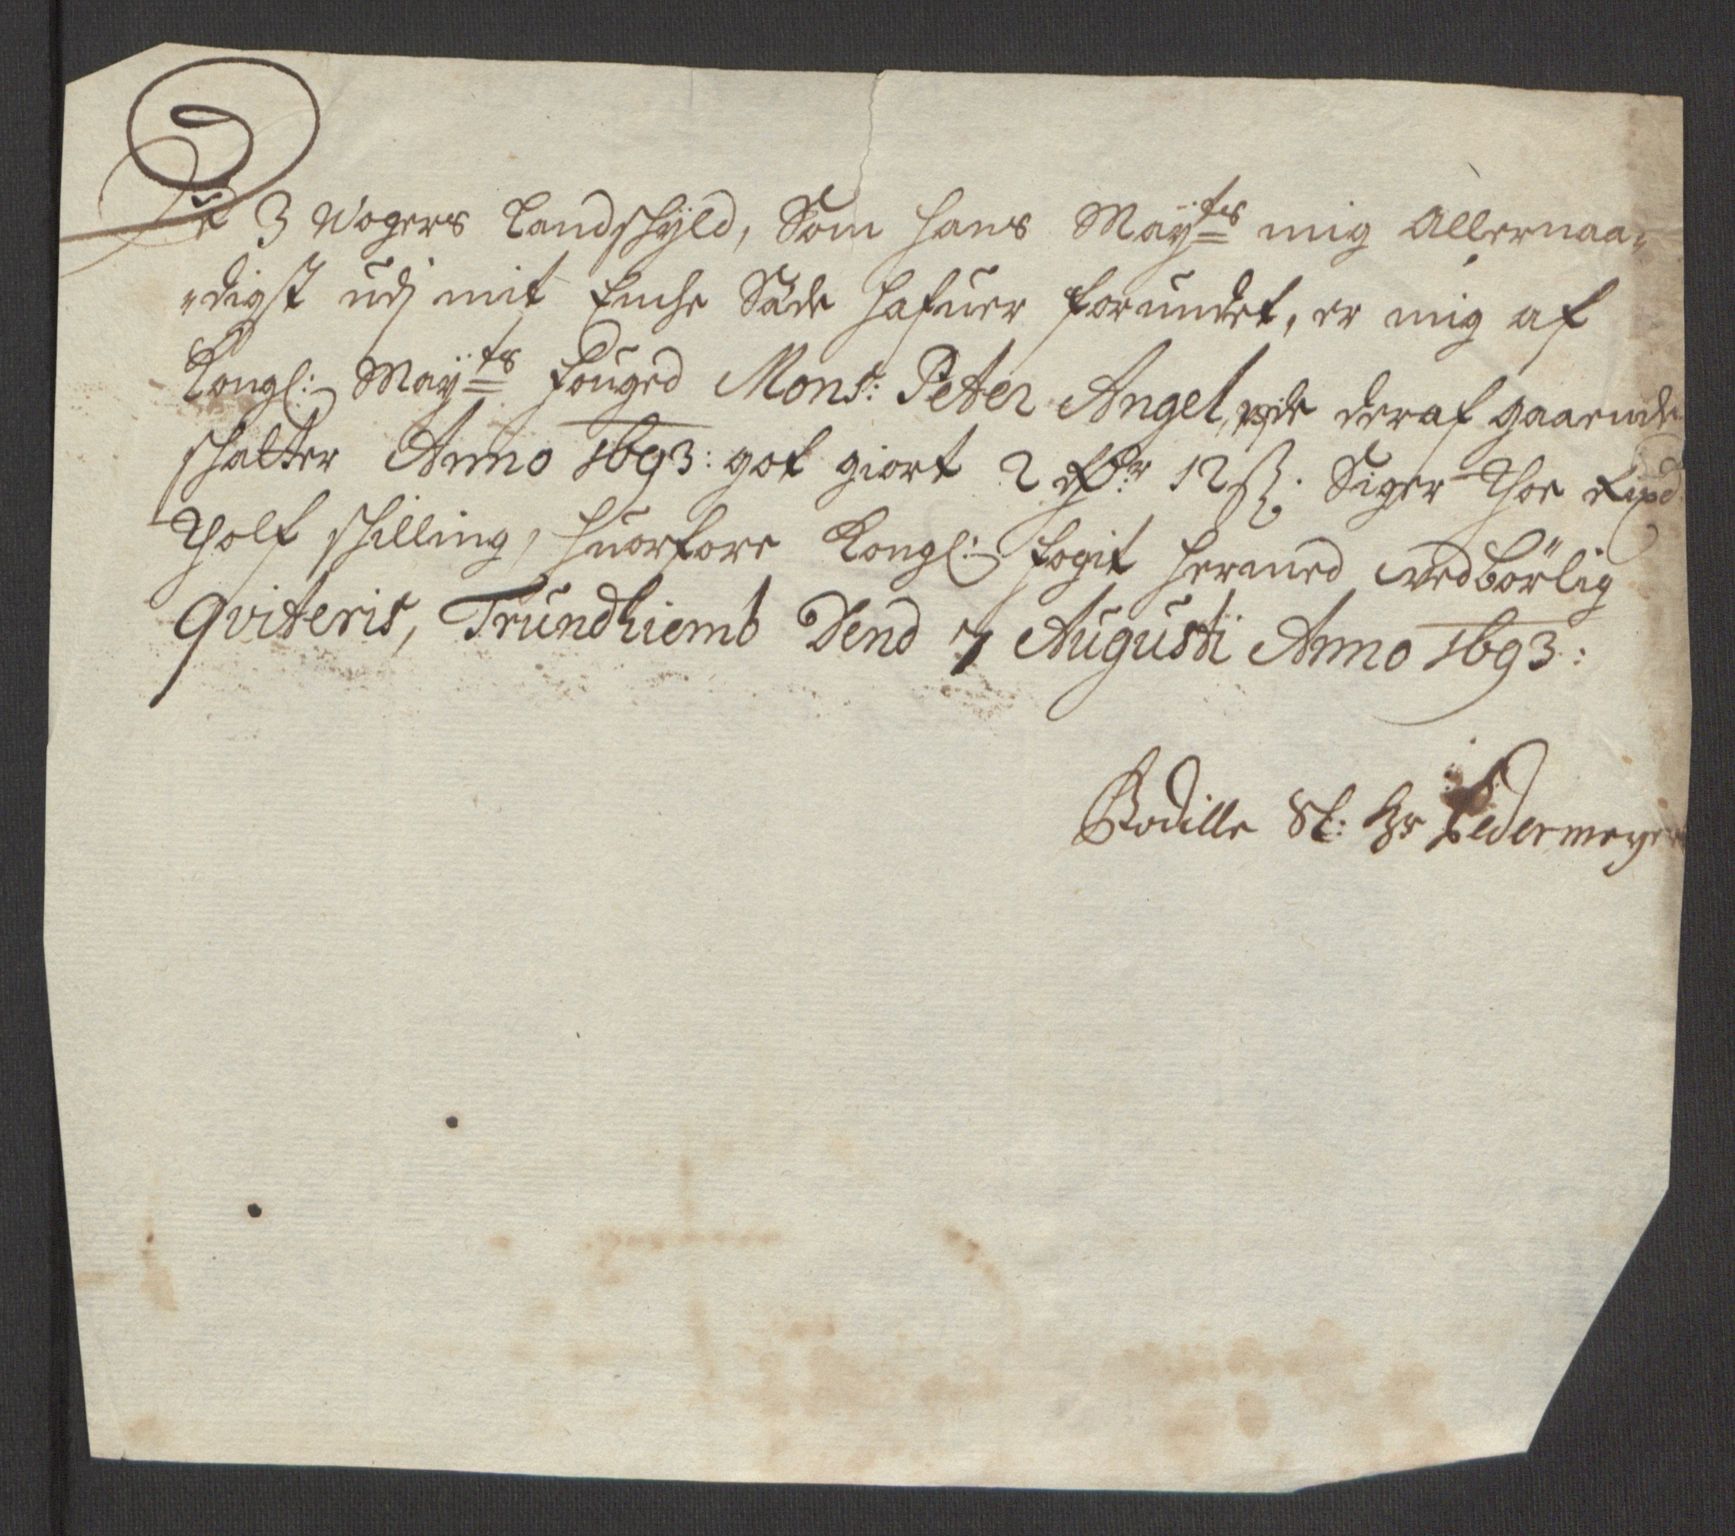 De 3 Wogers Landschÿld, Som hans Maÿ:ts mig Allernaa-
-digst udj mit Enche Säde hafuer forundet, er mig af
Kongl: Maÿ:ts fouged Monsr: Peter Angel, de deraf gaaende
schatter Anno 1693: got giort 2 Rdr 12 ß. Siger Thoe Rixd
Tholf schilling, huorfore Kongl: fogit hermed vedbörlig
qviteris, Trundhiemb Dend 7 Augusti Anno 1693:
Bodille Sl: Hr Ledermeyers